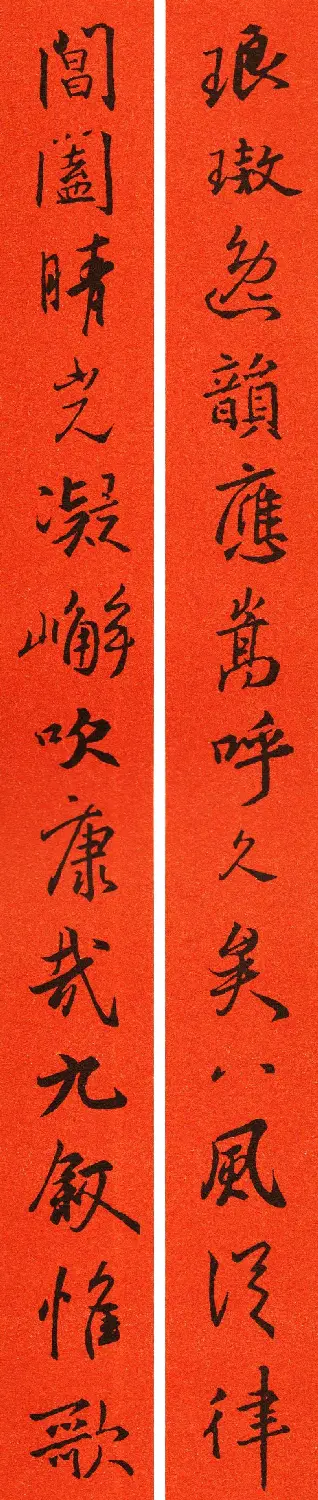 琅璈逸韻應嵩呼久矣八風從律
閶闔晴光凝嶰吹康哉九敘惟歌